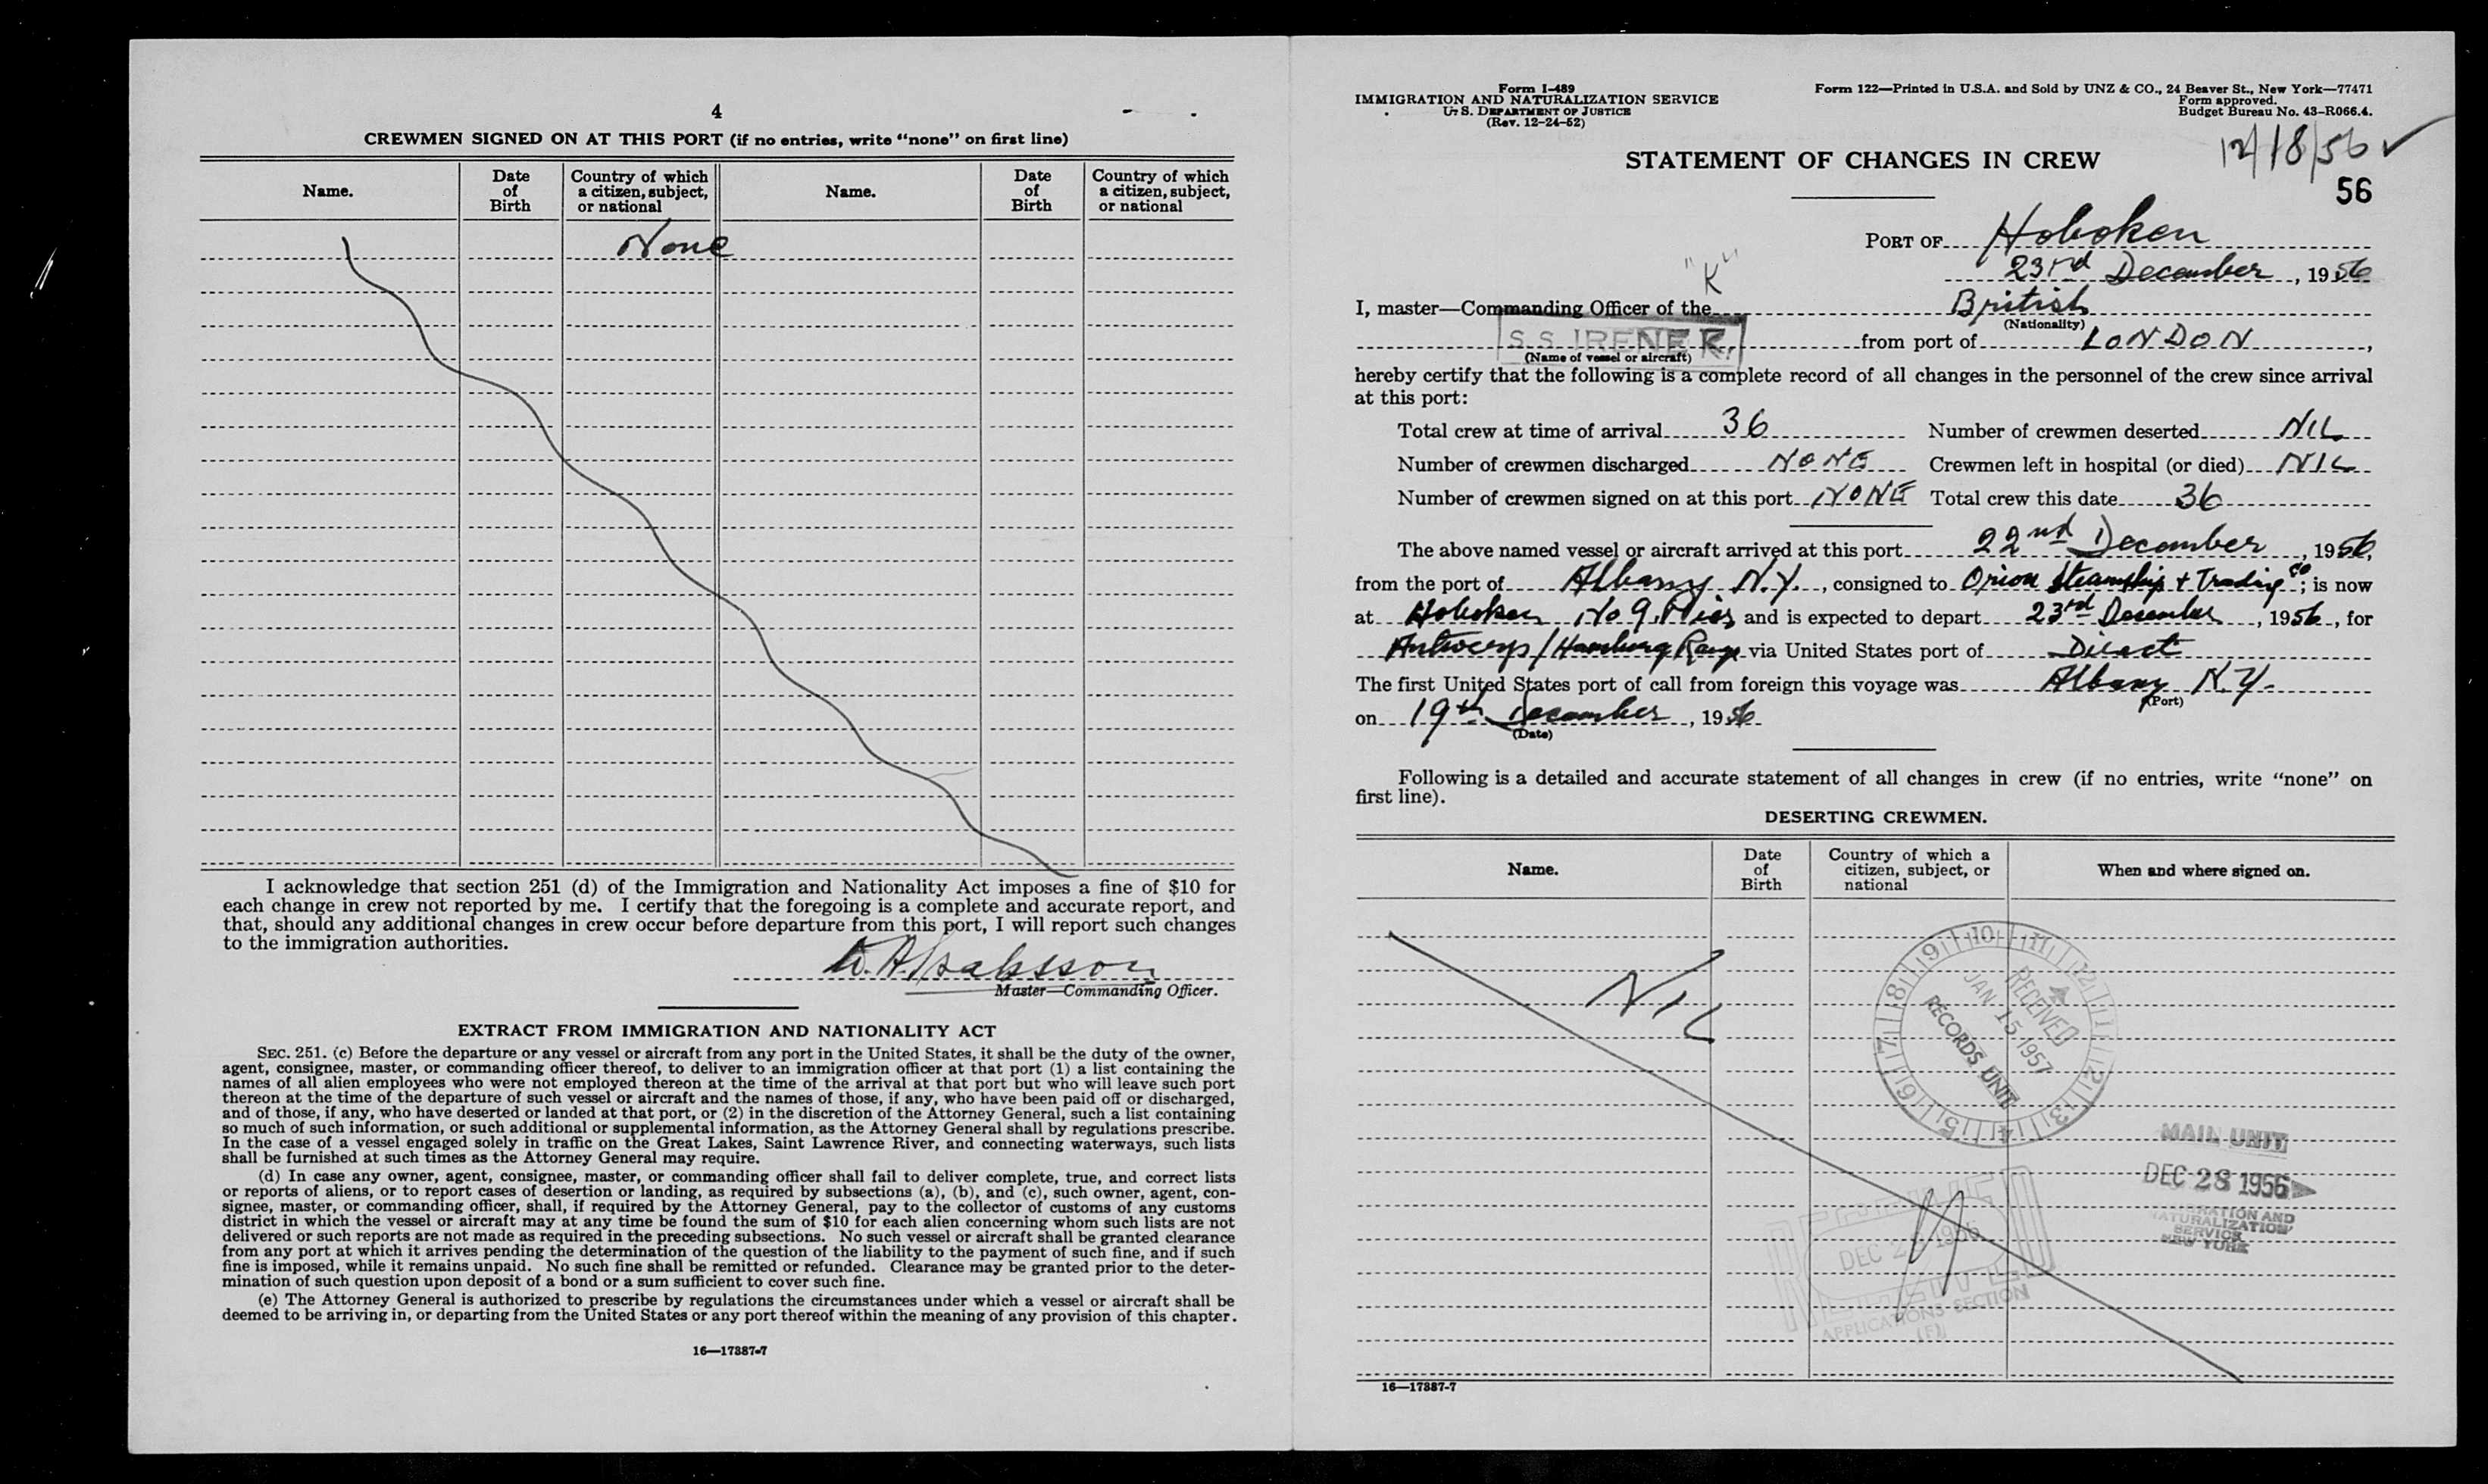 4
CREWMEN SIGNED ON AT THIS PORT (if no entries, write "none" on first line)
Name.
Date
of
Birth
Country of which
a citizen, subject,
or national
Name.
Date
of
Birth
Country of which
a citizen, subject,
or national
None
I acknowledge that section 251 (d) of the Immigration and Nationality Act imposes a fine of $10 for
each change in crew not reported by me. I certify that the foregoing is a complete and accurate report, and
that, should any additional changes in crew occur before departure from this port, I will report such changes
to the immigration authorities.
Master—Commanding Officer.
EXTRACT FROM IMMIGRATION AND NATIONALITY ACT
SEC. 251. (c) Before the departure or any vessel or aircraft from any port in the United States, it shall be the duty of the owner,
agent, consignee, master, or commanding officer thereof, to deliver to an immigration officer at that port (1) a list containing the
names of all alien employees who were not employed thereon at the time of the arrival at that port but who will leave such port
thereon at the time of the departure of such vessel or aircraft and the names of those, if any, who have been paid off or discharged,
and of those, if any, who have deserted or landed at that port, or (2) in the discretion of the Attorney General, such a list containing
so much of such information, or such additional or supplemental information, as the Attorney General shall by regulations prescribe.
In the case of a vessel engaged solely in traffic on the Great Lakes, Saint Lawrence River, and connecting waterways, such lists
shall be furnished at such times as the Attorney General may require.
(d) In case any owner, agent, consignee, master, or commanding officer shall fail to deliver complete, true, and correct lists
or reports of aliens, or to report cases of desertion or landing, as required by subsections (a), (b), and (c), such owner, agent, con-
signee, master, or commanding officer, shall, if required by the Attorney General, pay to the collector of customs of any customs
district in which the vessel or aircraft may at any time be found the sum of $10 for each alien concerning whom such lists are not
delivered or such reports are not made as required in the preceding subsections. No such vessel or aircraft shall be granted clearance
from any port at which it arrives pending the determination of the question of the liability to the payment of such fine, and if such
fine is imposed, while it remains unpaid. No such fine shall be remitted or refunded. Clearance may be granted prior to the deter-
mination of such question upon deposit of a bond or a sum sufficient to cover such fine.
(e) The Attorney General is authorized to prescribe by regulations the circumstances under which a vessel or aircraft shall be
deemed to be arriving in, or departing from the United States or any port thereof within the meaning of any provision of this chapter.
16—17887-7
Form I-489
IMMIGRATION AND NATURALIZATION SERVICE
U. S. DEPARTMENT OF JUSTICE
(Rev. 12-24-52)
Form 122—Printed in U.S.A. and Sold by UNZ & CO., 24 Beaver St., New York—77471
Form approved.
Budget Bureau No. 43-R066.4.
12/18/56 ✓
STATEMENT OF CHANGES IN CREW
56
PORT OF Hoboken
23rd December, 1956
"K"
I, master—Commanding Officer of the British
(Nationality)
S.S. IRENE K. from port of LONDON,
(Name of vessel or aircraft)
hereby certify that the following is a complete record of all changes in the personnel of the crew since arrival
at this port:
Total crew at time of arrival 36 Number of crewmen deserted NIL
Number of crewmen discharged NONE Crewmen left in hospital (or died) NIL
Number of crewmen signed on at this port NONE Total crew this date 36
The above named vessel or aircraft arrived at this port 22nd December, 1956,
from the port of Albany N.Y., consigned to Orion Steamship + Trading Co; is now
at Hoboken No 9 Pier, and is expected to depart 23rd December, 1956, for
Antwerp/Hamburg Range via United States port of Direct
The first United States port of call from foreign this voyage was Albany N.Y.
(Port)
on 19th December, 1956
(Date)
Following is a detailed and accurate statement of all changes in crew (if no entries, write "none" on
first line).
DESERTING CREWMEN.
Name.
Date
of
Birth
Country of which a
citizen, subject, or
national
When and where signed on.
NIL
RECEIVED
JAN 15 1957
RECORDS UNIT
MAIL UNIT
DEC 28 1956
NATURALIZATION
SERVICE
NEW YORK
APPLICATIONS SECTION
(F)
16—17887-7